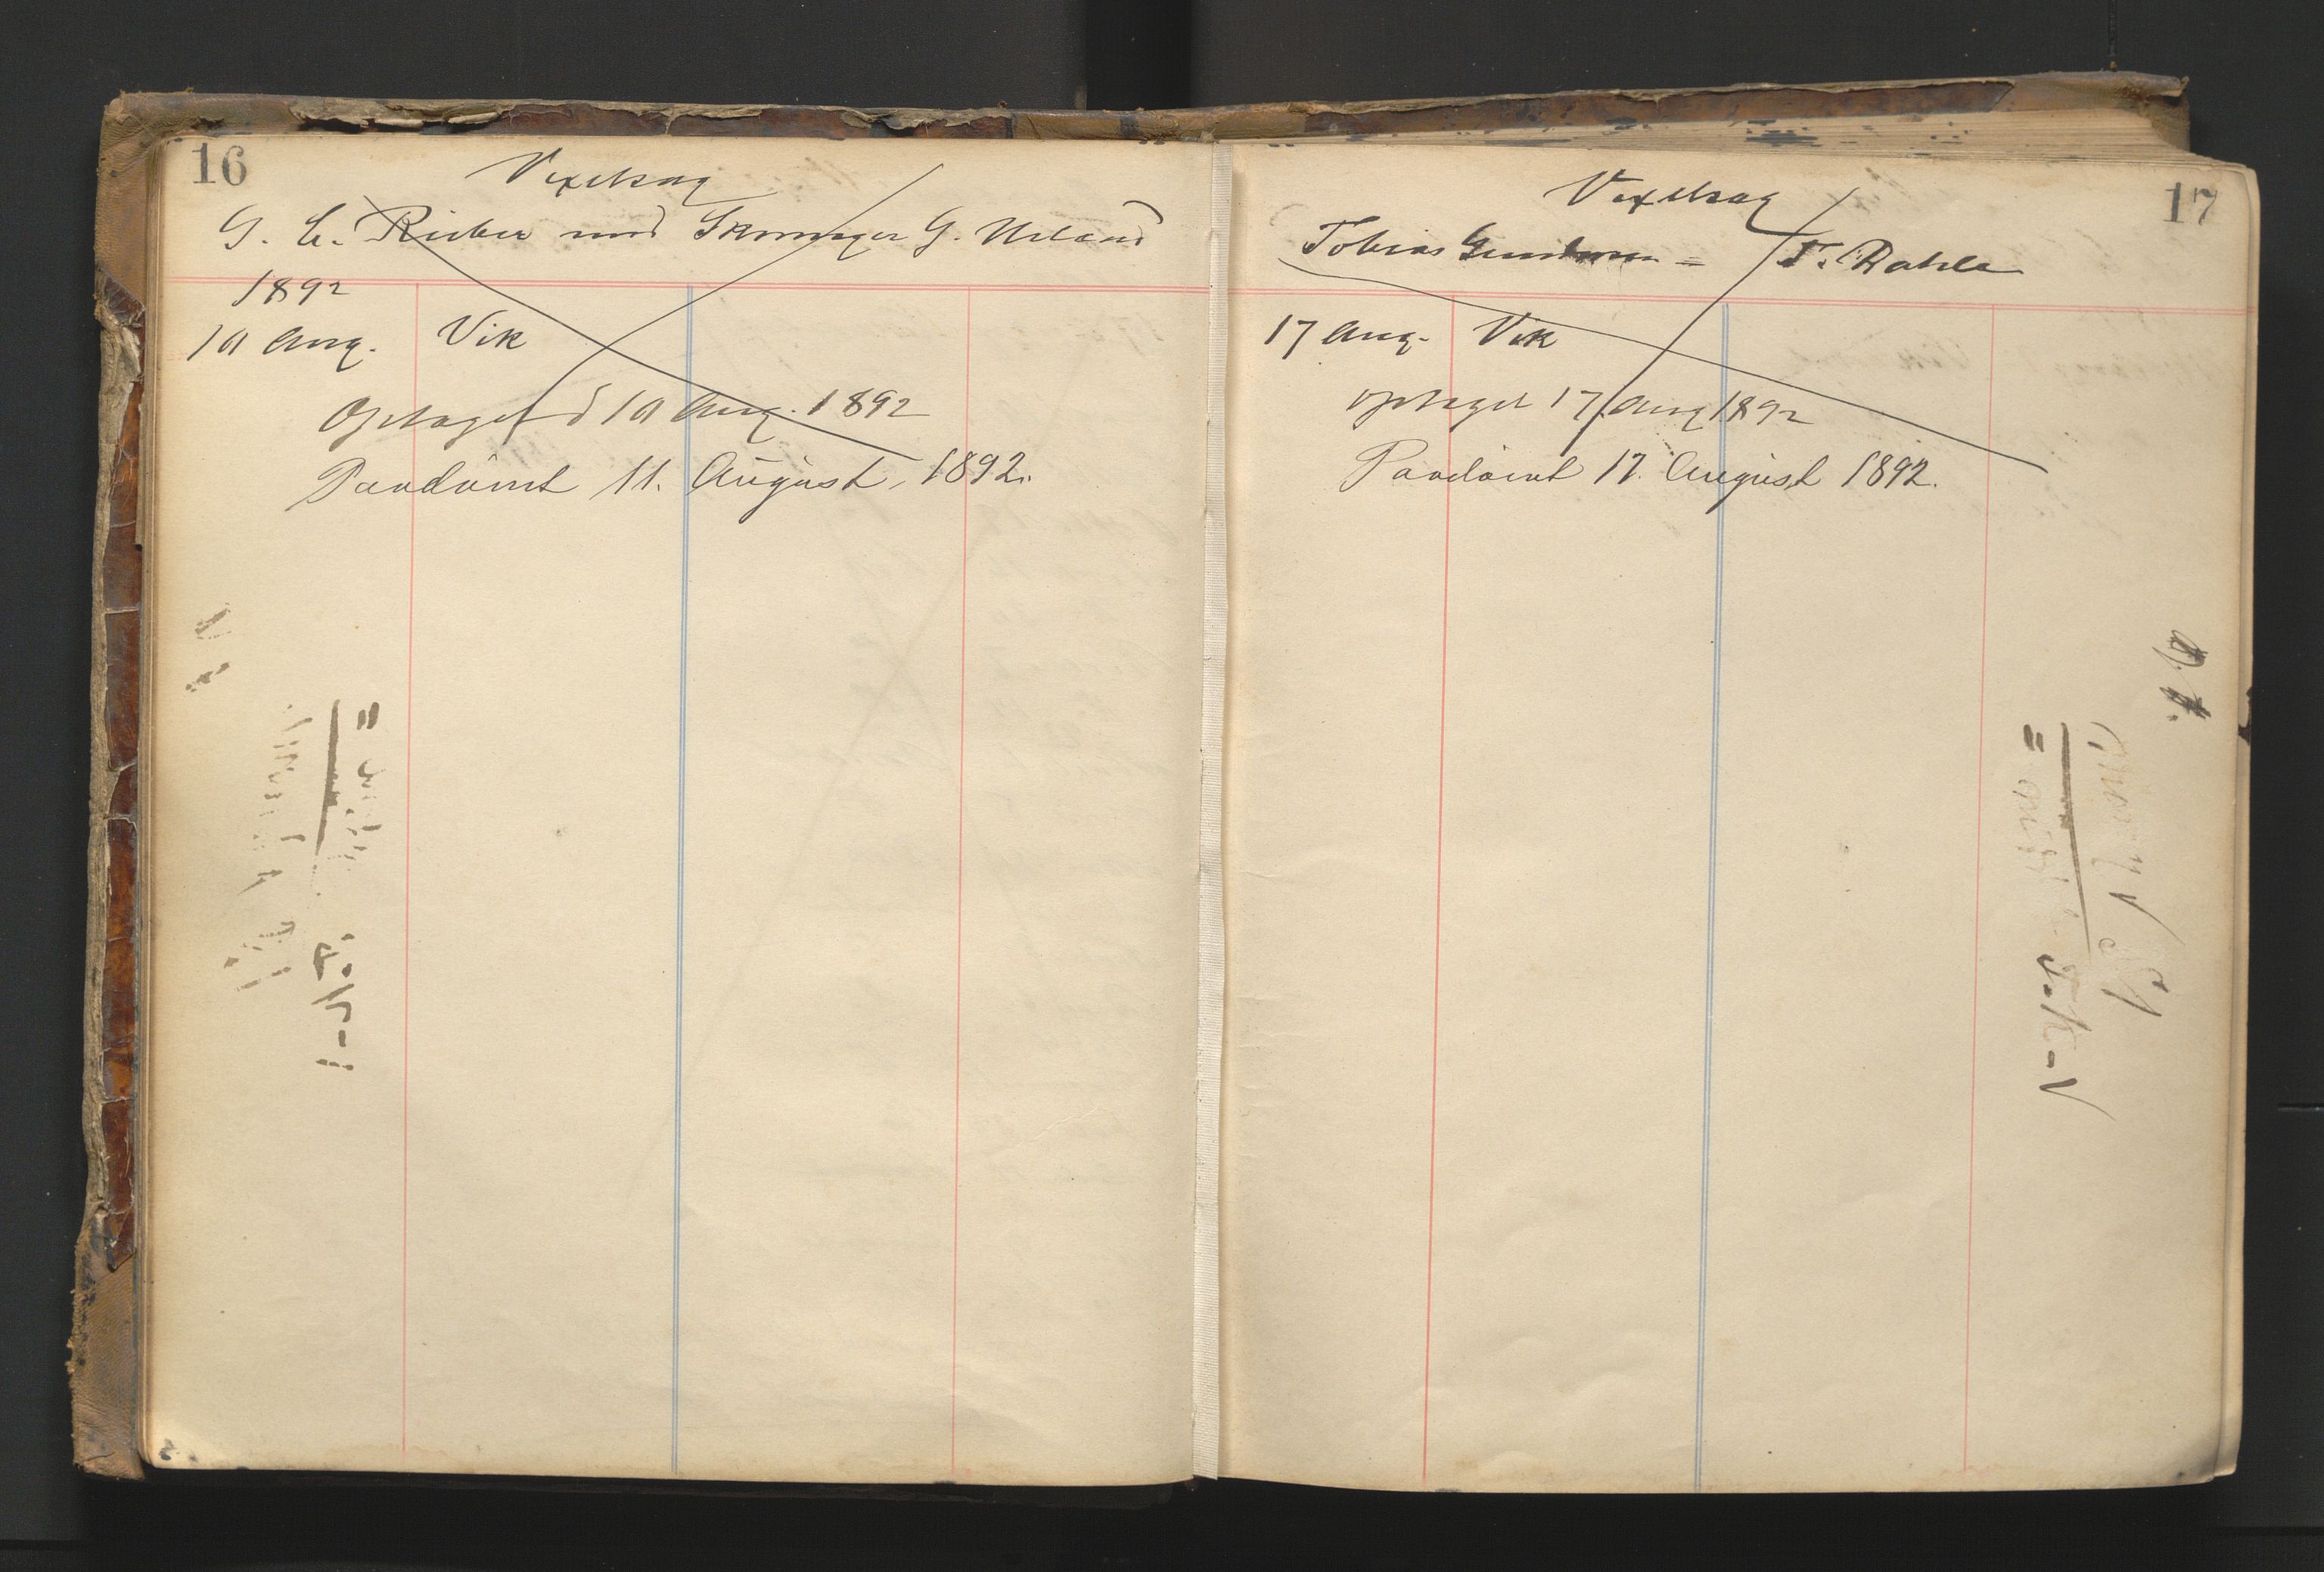 16
Vexelsag
G. C. Rieber mod Skomager G. Urland
1892
10 Aug. Vik
Optaget d 10 Aug. 1892
Paadömt 11. August 1892.
17
Vexelsag
Tobias = T. Rahle
17 Aug. Vik
optaget 17 Aug 1892
Paadömt 17. August 1892.